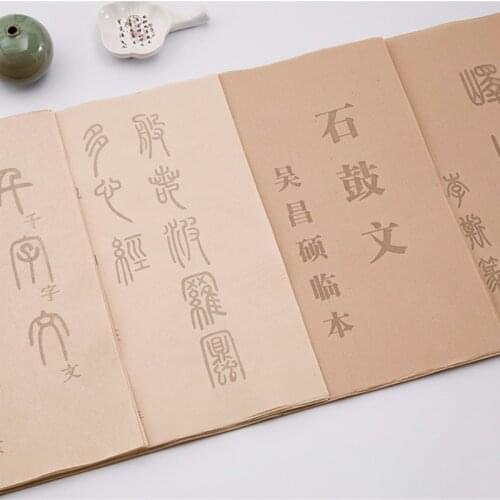 千字文
千字文
般若波羅蜜
多心經
石鼓文
吴昌硕临本
嶧山
李斯篆